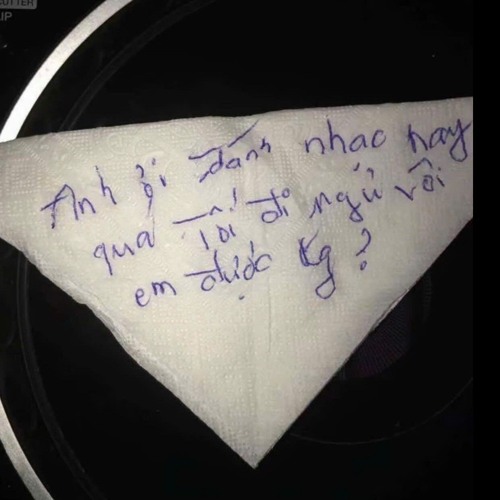 CUTTER
UP
Anh ơi đánh nhạc hay
quá Tối đi ngủ với
em được Kg?